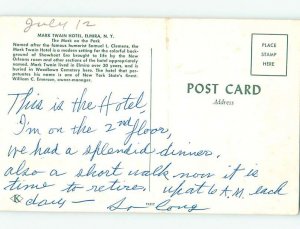 July 12
MARK TWAIN HOTEL, ELMIRA, N. Y.
The Mark on the Park
Named after the famous humorist Samuel L. Clemens, the
Mark Twain Hotel is a modern setting for the colorful back-
ground of Showboat Era brought to life by the New
Orleans room and other sections of the hotel appropriately
named. Mark Twain lived in Elmira over 20 years, and is
buried in Woodlawn Cemetery here. The hotel that per-
petuates his name is one of New York State's finest.
William C. Emerson, owner-manager.
PLACE
STAMP
HERE
POST CARD
Address
This is the Hotel
I'm on the 2nd floor,
we had a splendid dinner,
also a short walk now it is
time to retire, up at 6 A.M. each
day — So long
K